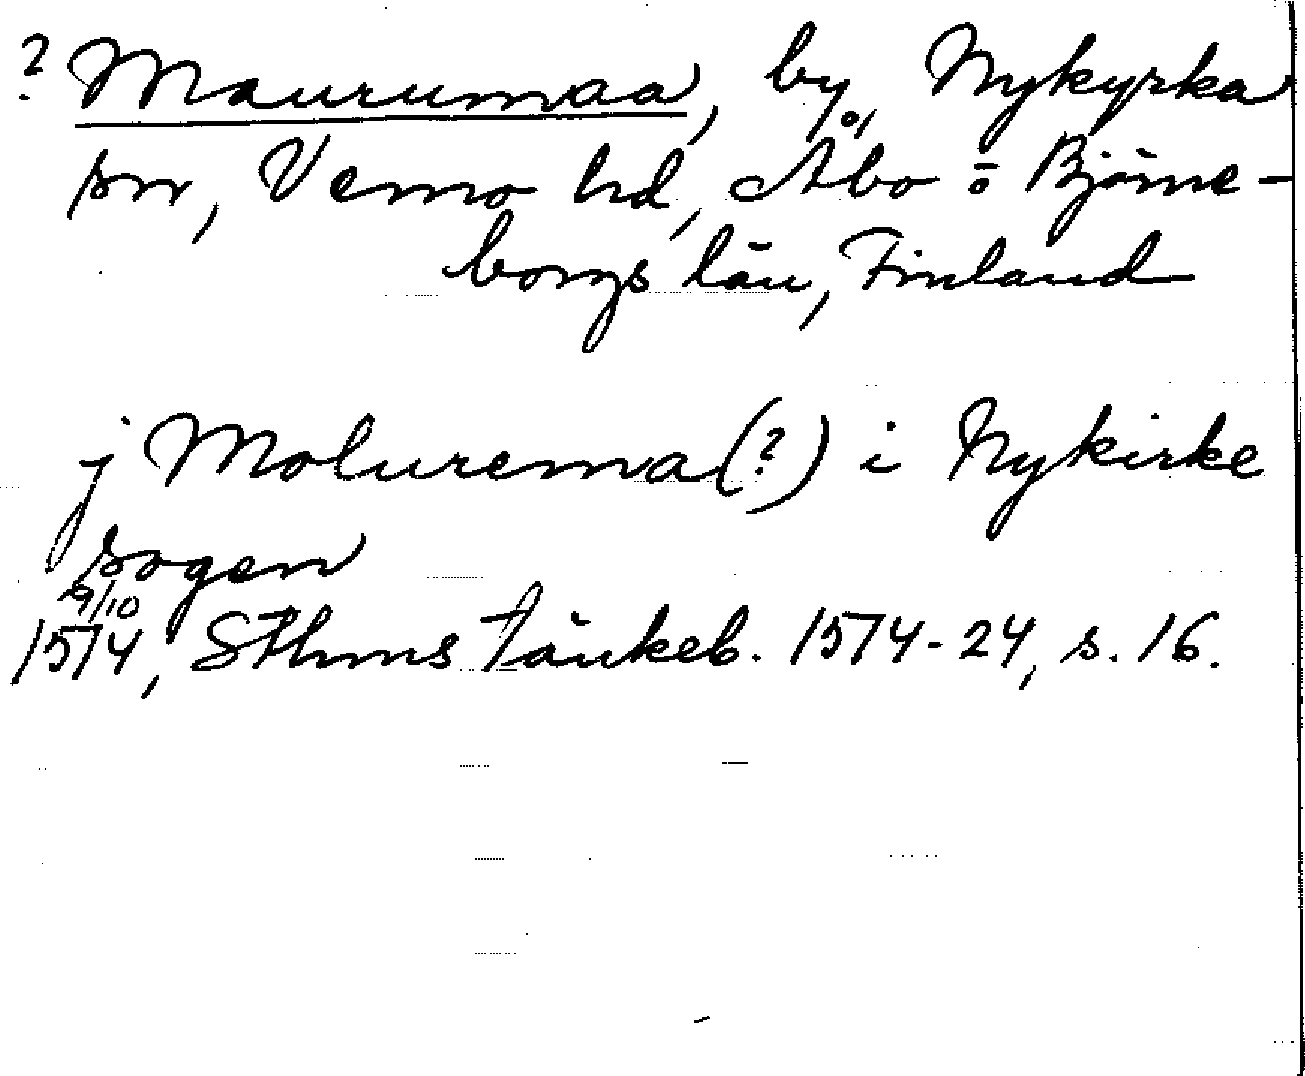 ? Maurumaa, by, Nykyrka
sn, Vemo hd, Åbo o Björne-
borgs län, Finland
j Molurema(?) i Nykirke
sogen
9/10
1574, Sthms tänkeb. 1574-24, s. 16.